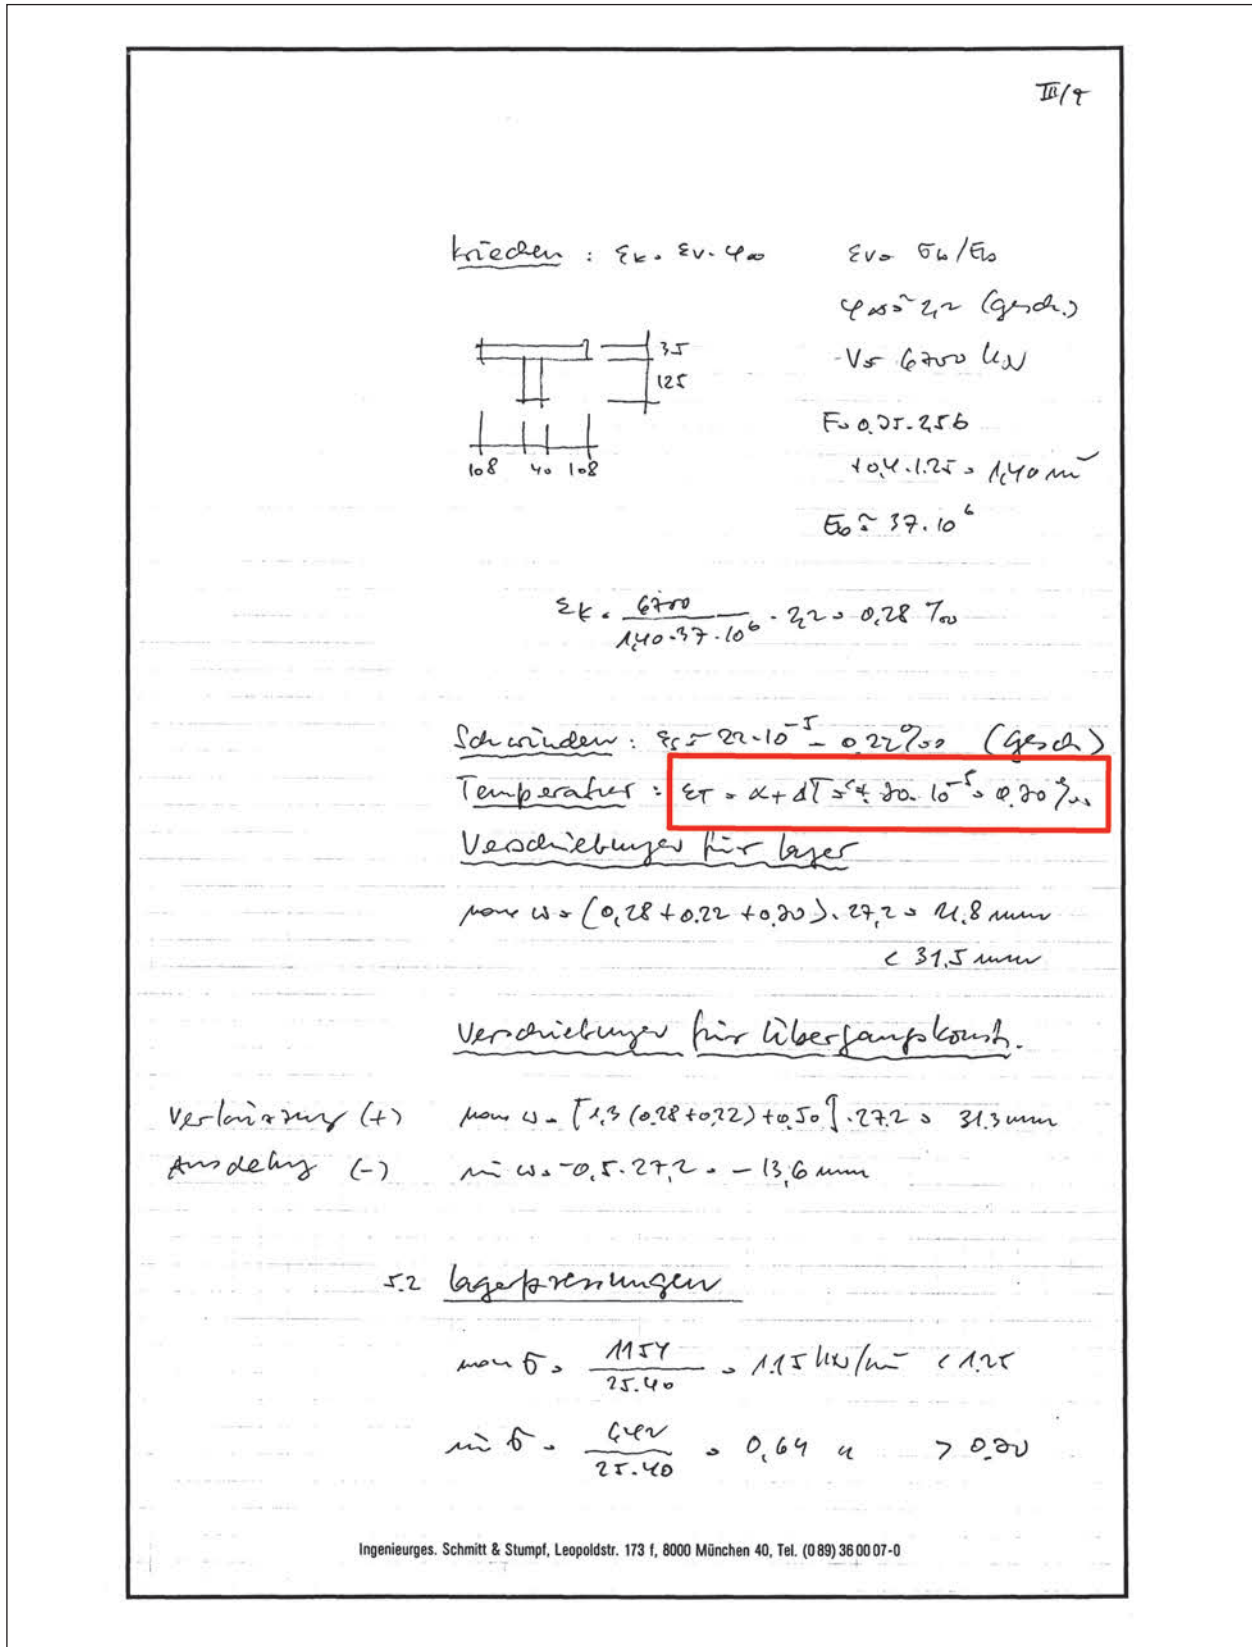 III/9
Kriechen : εk = εv · φ∞    εv = σb/Eb
φ∞ ≈ 2,2 (gesch.)
35
V = 6700 kN
125
F = 0,35 · 2,56
108 40 108
+ 0,4 · 1.25 = 1,40 m²
Eb ≈ 37 · 10⁶
εk = 6700 / 1,40 · 37 · 10⁶ · 2,2 = 0,28 ‰
Schwinden : εs = 22 · 10⁻⁵ = 0,22 ‰ (gesch)
Temperatur : εT = αT ΔT = 30 · 10⁻⁵ = 0,30 ‰
Verschiebungen für Lager
max w = (0,28 + 0.22 + 0,30) · 27,2 = 21,8 mm
< 31,5 mm
Verschiebungen für Übergangskonstr.
Verkürzung (+) max w = [1,3 (0.28 + 0,22) + 0,50] · 27.2 = 31.3 mm
Ausdehng (-) min w = -0,5 · 27,2 = - 13,6 mm
5.2 Lagerpressungen
max σ = 1154 / 25.40 = 1.15 kN/cm² < 1.25
min σ = 642 / 25.40 = 0,64 " > 0.30
Ingenieurges. Schmitt & Stumpf, Leopoldstr. 173 f, 8000 München 40, Tel. (0 89) 36 00 07-0